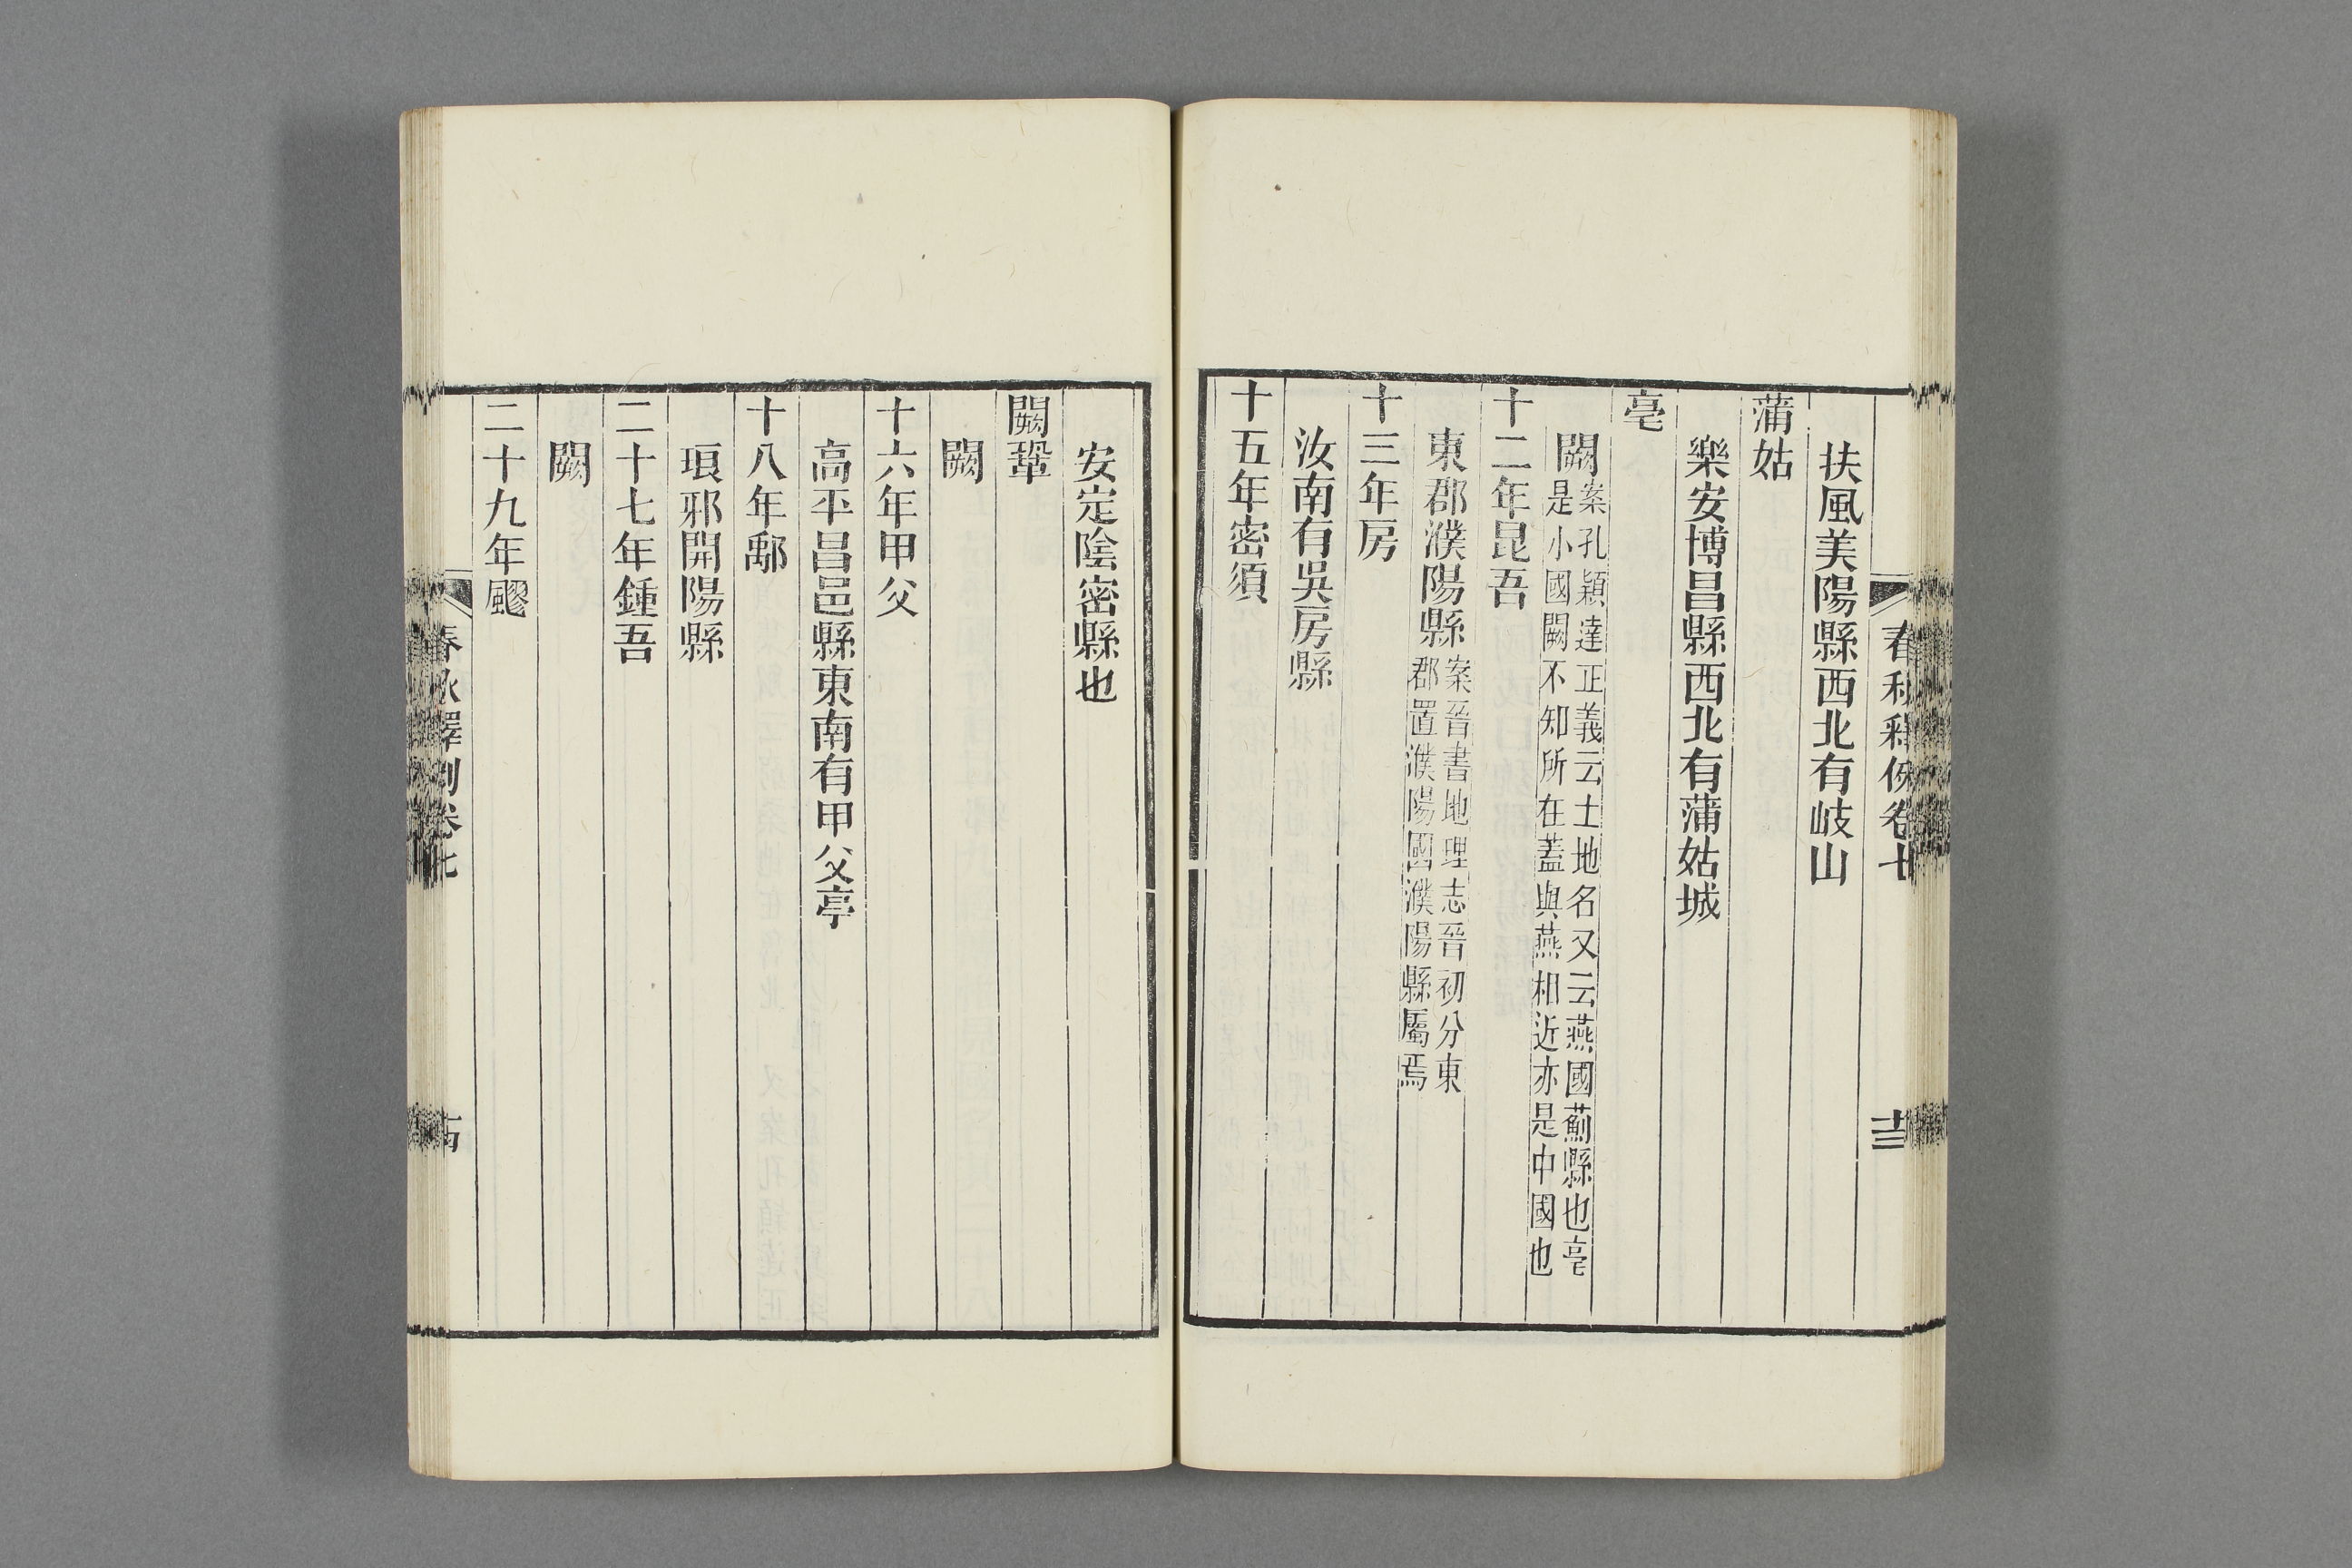 春秋釋例卷七
十三
扶風美陽縣西北有岐山
蒲姑
樂安博昌縣西北有蒲姑城
亳
闕案孔穎達正義云土地名又云燕國薊縣也亳
是小國闕不知所在蓋與燕相近亦是中國也
十二年昆吾
東郡濮陽縣案晉書地理志晉初分東
郡置濮陽國濮陽縣屬焉
十三年房
汝南有吳房縣
十五年密須
安定陰密縣也
闕鞏
闕
十六年甲父
高平昌邑縣東南有甲父亭
十八年鄅
琅邪開陽縣
二十七年鍾吾
闕
二十九年飂
春秋釋例卷七